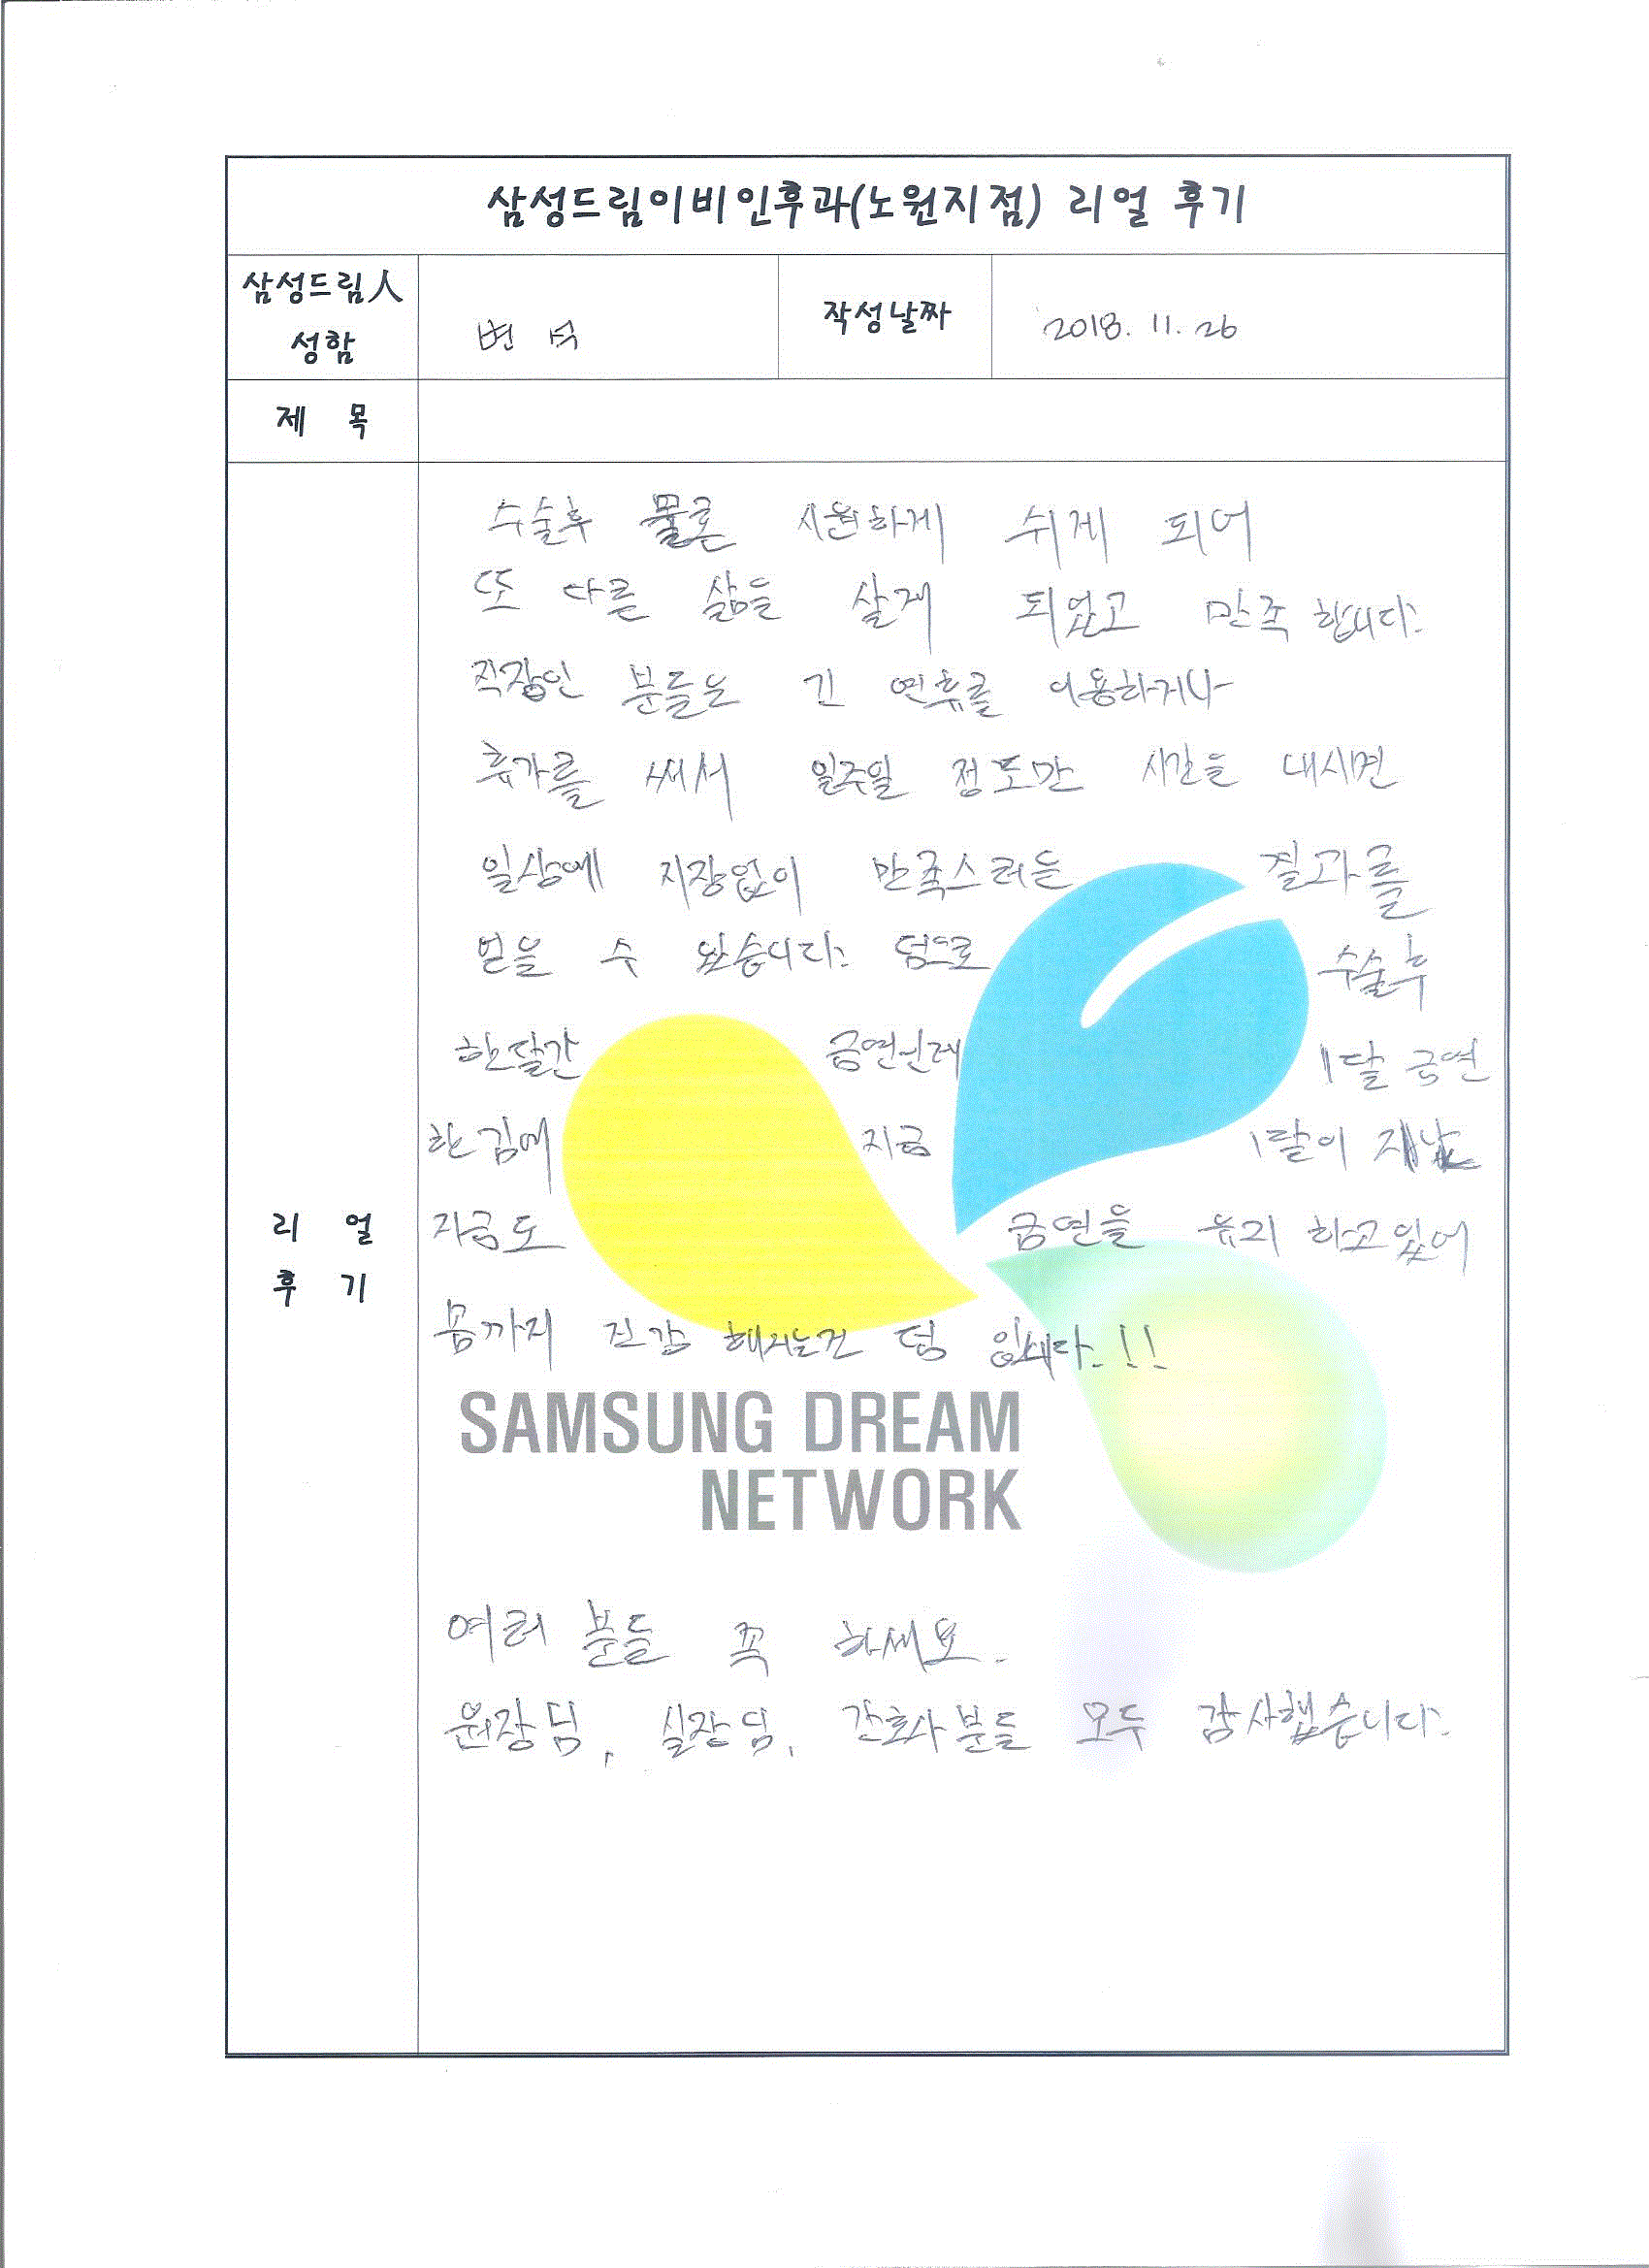 삼성드림이비인후과(노원지점) 리얼 후기
삼성드림人
성함
변 석
작성날짜
2018. 11. 26
제 목
수술후 물론 시원하게 쉬게 되어
또 다른 삶을 살게 되었고 만족 합니다.
직장인 분들은 긴 연휴를 이용하거나
휴가를 써서 일주일 정도만 시간을 내시면
일상에 지장없이 만족스러든 결과를
얻을 수 있습니다. 덤으로 수술후
한달간 금연인데 1달 금연
한김에 지금 1달이 지난
리 얼
후 기
지금도 금연을 유지 하고있어
몸까지 건강 해지는건 덤 입니다.!!
SAMSUNG DREAM
NETWORK
여러 분들 꼭 하세요.
원장님, 실장님, 간호사분들 모두 감사했습니다.